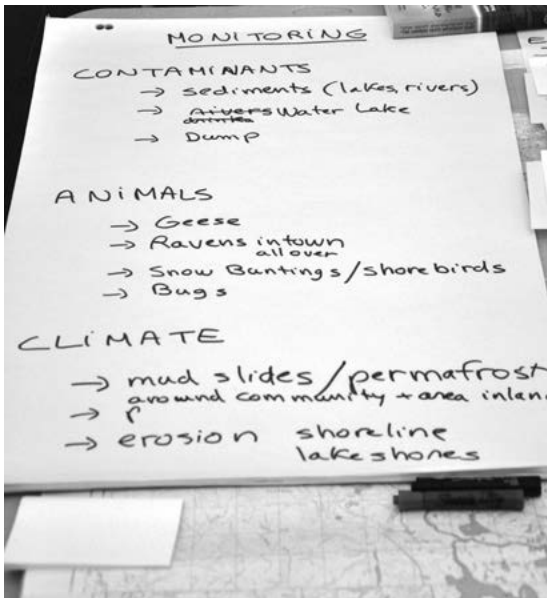 MONITORING
CONTAMINANTS
→ sediments (lakes, rivers)
→ Rivers Water Lake
→ Dump
ANIMALS
→ Geese
→ Ravens in town
all over
→ Snow Buntings/shorebirds
→ Bugs
CLIMATE
→ mud slides/permafrost
around community + area inlan
→ P
→ erosion shoreline
lake shores